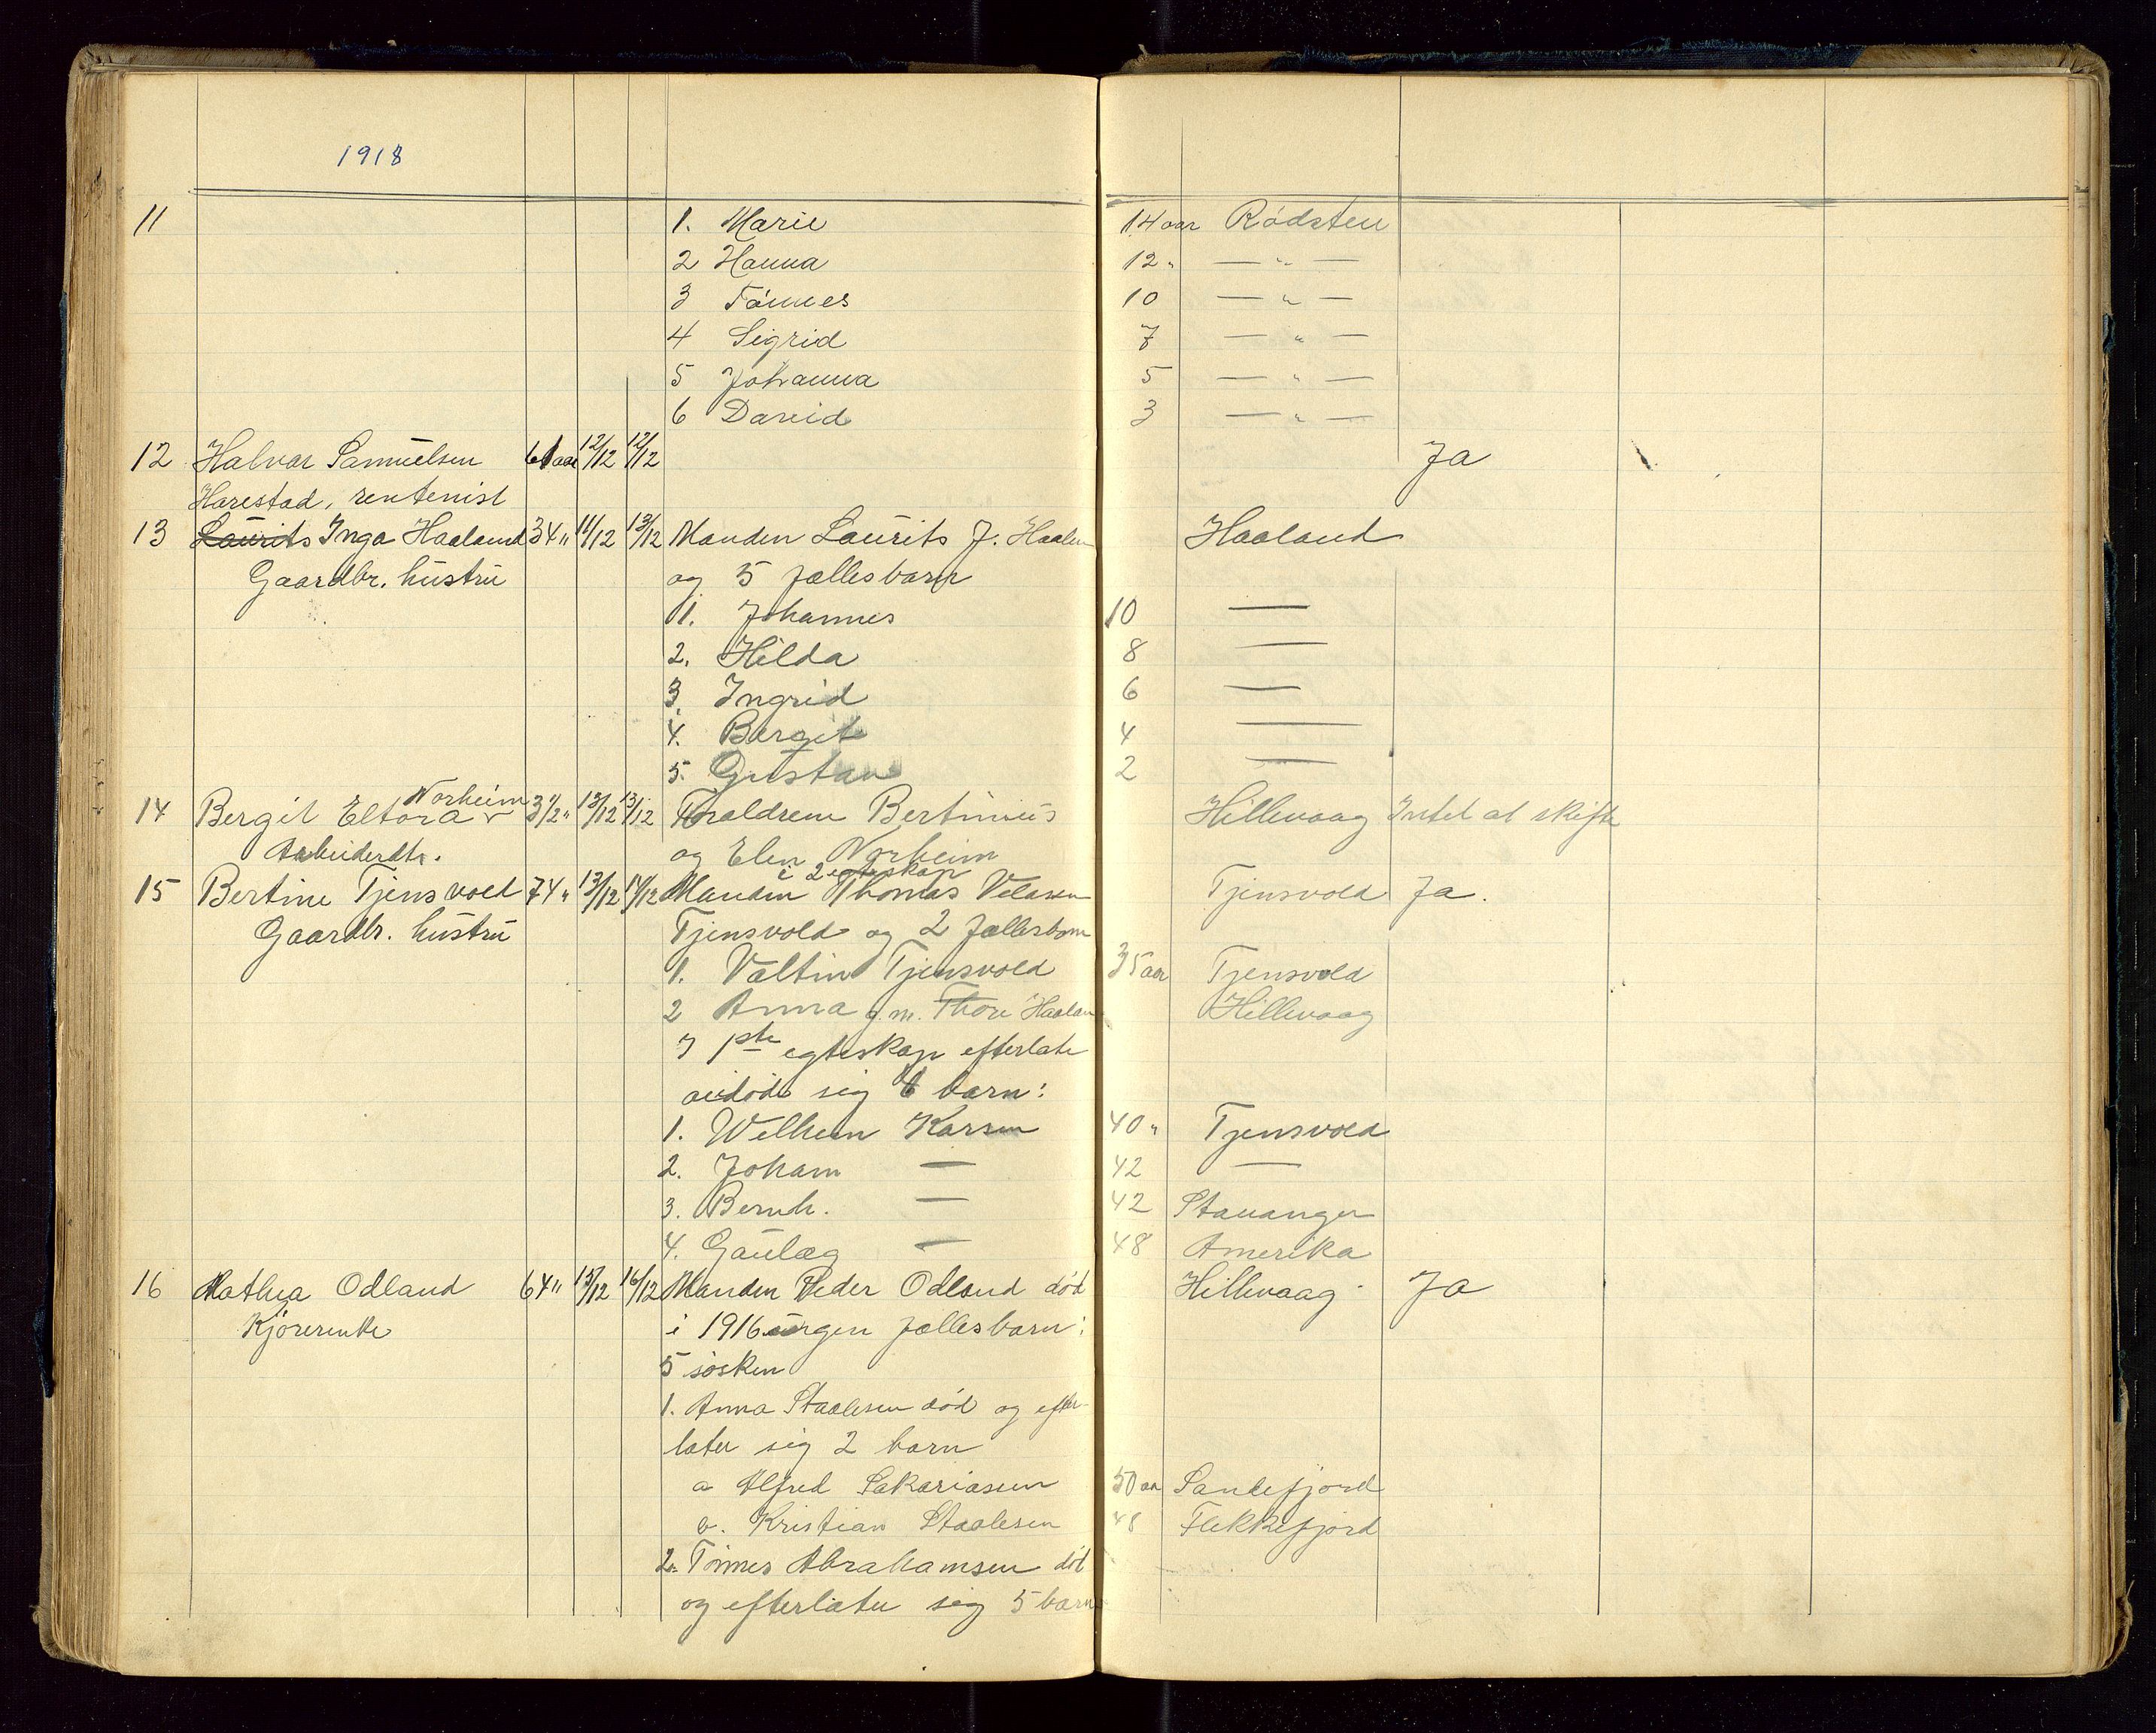 1918
11 1. Marie 14 aar Rødsten
2 Hanna 12 " — " —
3 Tønnes 10 — " —
4 Sigrid 7 — " —
5 Johanna 5 — " —
6 David 3 — " —
12 Halvar Samuelsen 61 aar 12/12 12/12 Ja
Harestad, rentenist
13 Laurits Inga Haaland 34 " 11/12 13/12 Manden Laurits J. Haalan Haaland
Gaardbr. hustru og 5 fællesbarn
1. Johannes 10 —
2. Hilda 8 —
3. Ingrid 6 —
4. Bergit 4 —
5. Gustav 2 —
Norheim
14 Bergit Eltora 3 1/2 " 13/12 13/12 Foraldrene Bertinius Hillevaag Intet at skifte
Arbeiderdtr. og Elen Norheim
i 2 egteskap
15 Bertine Tjensvold 74 " 13/12 14/12 Manden Thomas Velasen Tjensvold Ja.
Gaardbr. hustru Tjensvold og 2 fællesbarn
1. Valtin Tjensvold 35 aar Tjensvold
2 Anna g.m. Thore Haalan Hillevaag
I 1ste egteskap efterlate
avdøde sig 4 barn:
1. Welhem Karsen 40 " Tjensvold
2. Joham — 42 —
3. Bernh. — 42 Stavanger
4. Gaulæg — 48 Amerika
16 Mathea Odland 64 " 15/12 16/12 Manden Peder Odland død Hillevaag Ja
Kjørerenke i 1916 ingen fællesbarn:
5 søsken
1. Anna Staalesen død og efter-
later sig 2 barn
a Alfred Sakariasen 50 aar Sandefjord
b. Kristian Staalesen 48 Flekkefjord
2. Tønnes Abrahamsen død
og efterlater sig 5 barn